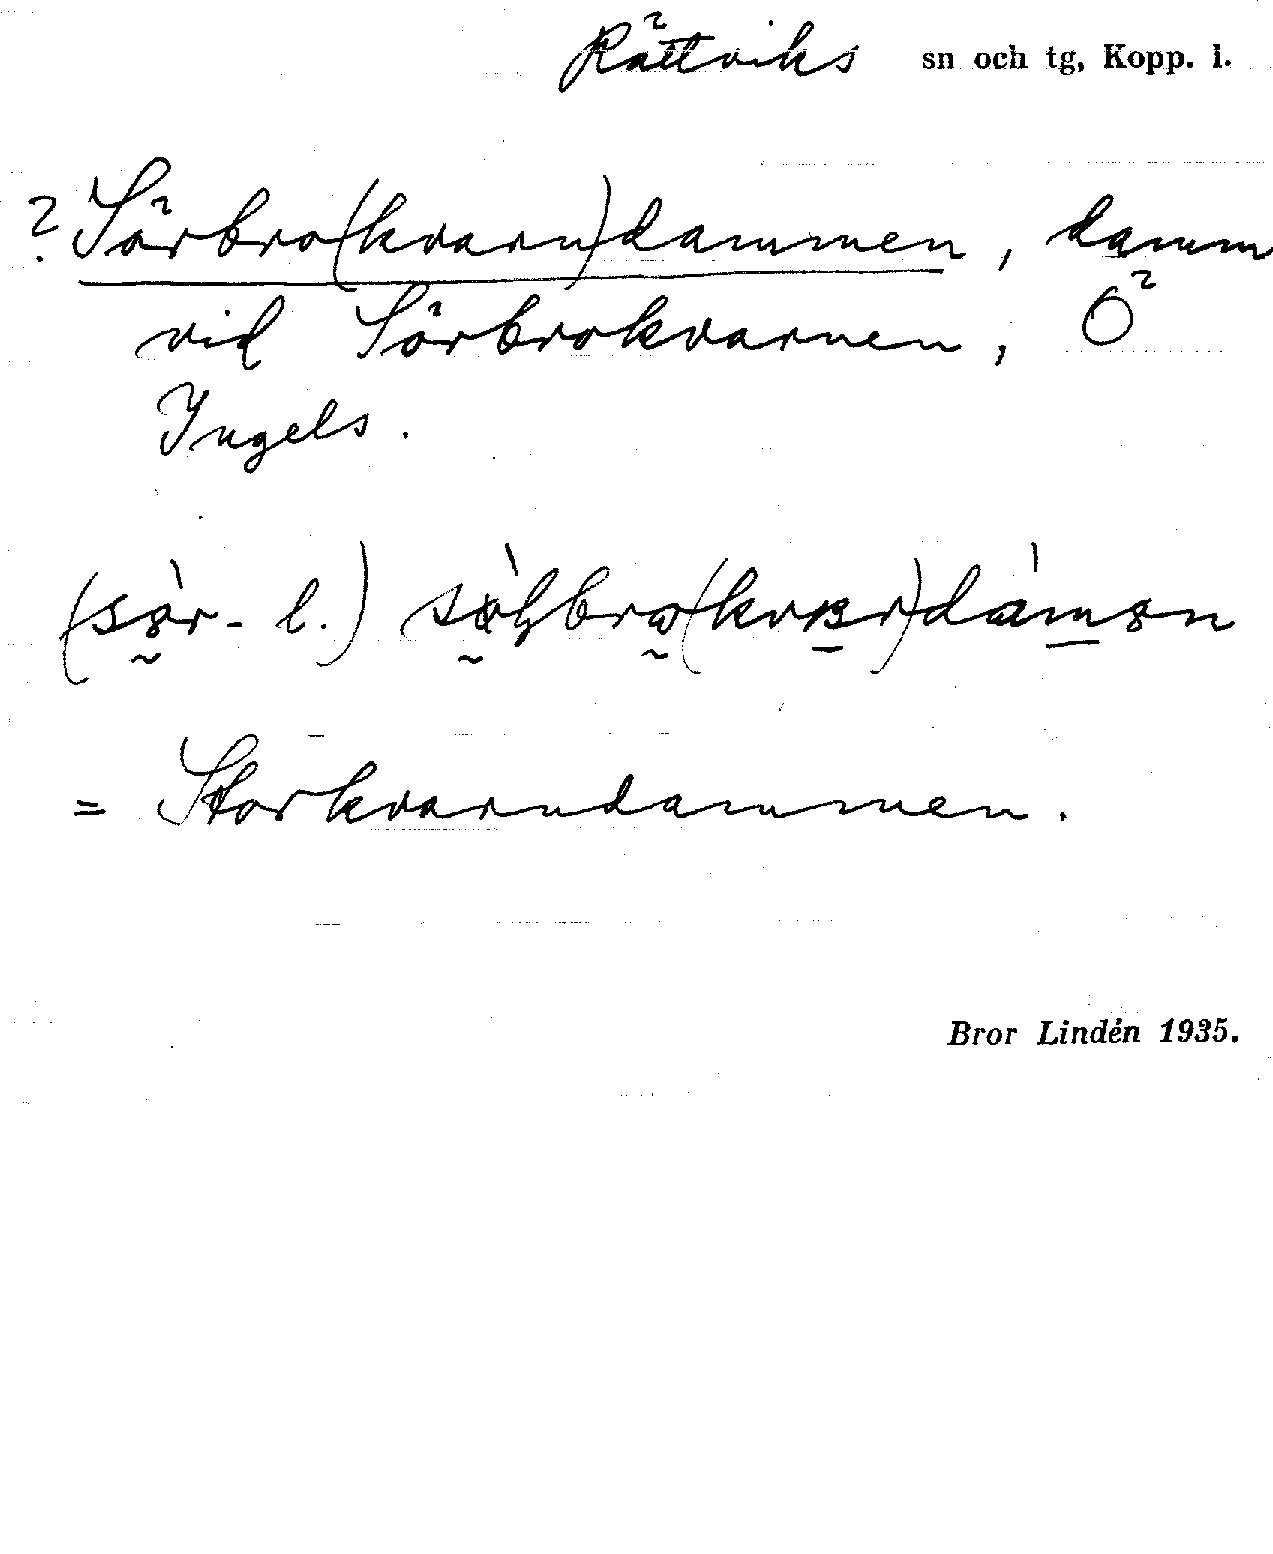 Rättviks sn och tg, Kopp. l.
? Sörbro(kvarn)dammen, damm
vid Sörbrokvarnen, Ö
Ingels.
= Storkvarndammen.
Bror Lindén 1935.